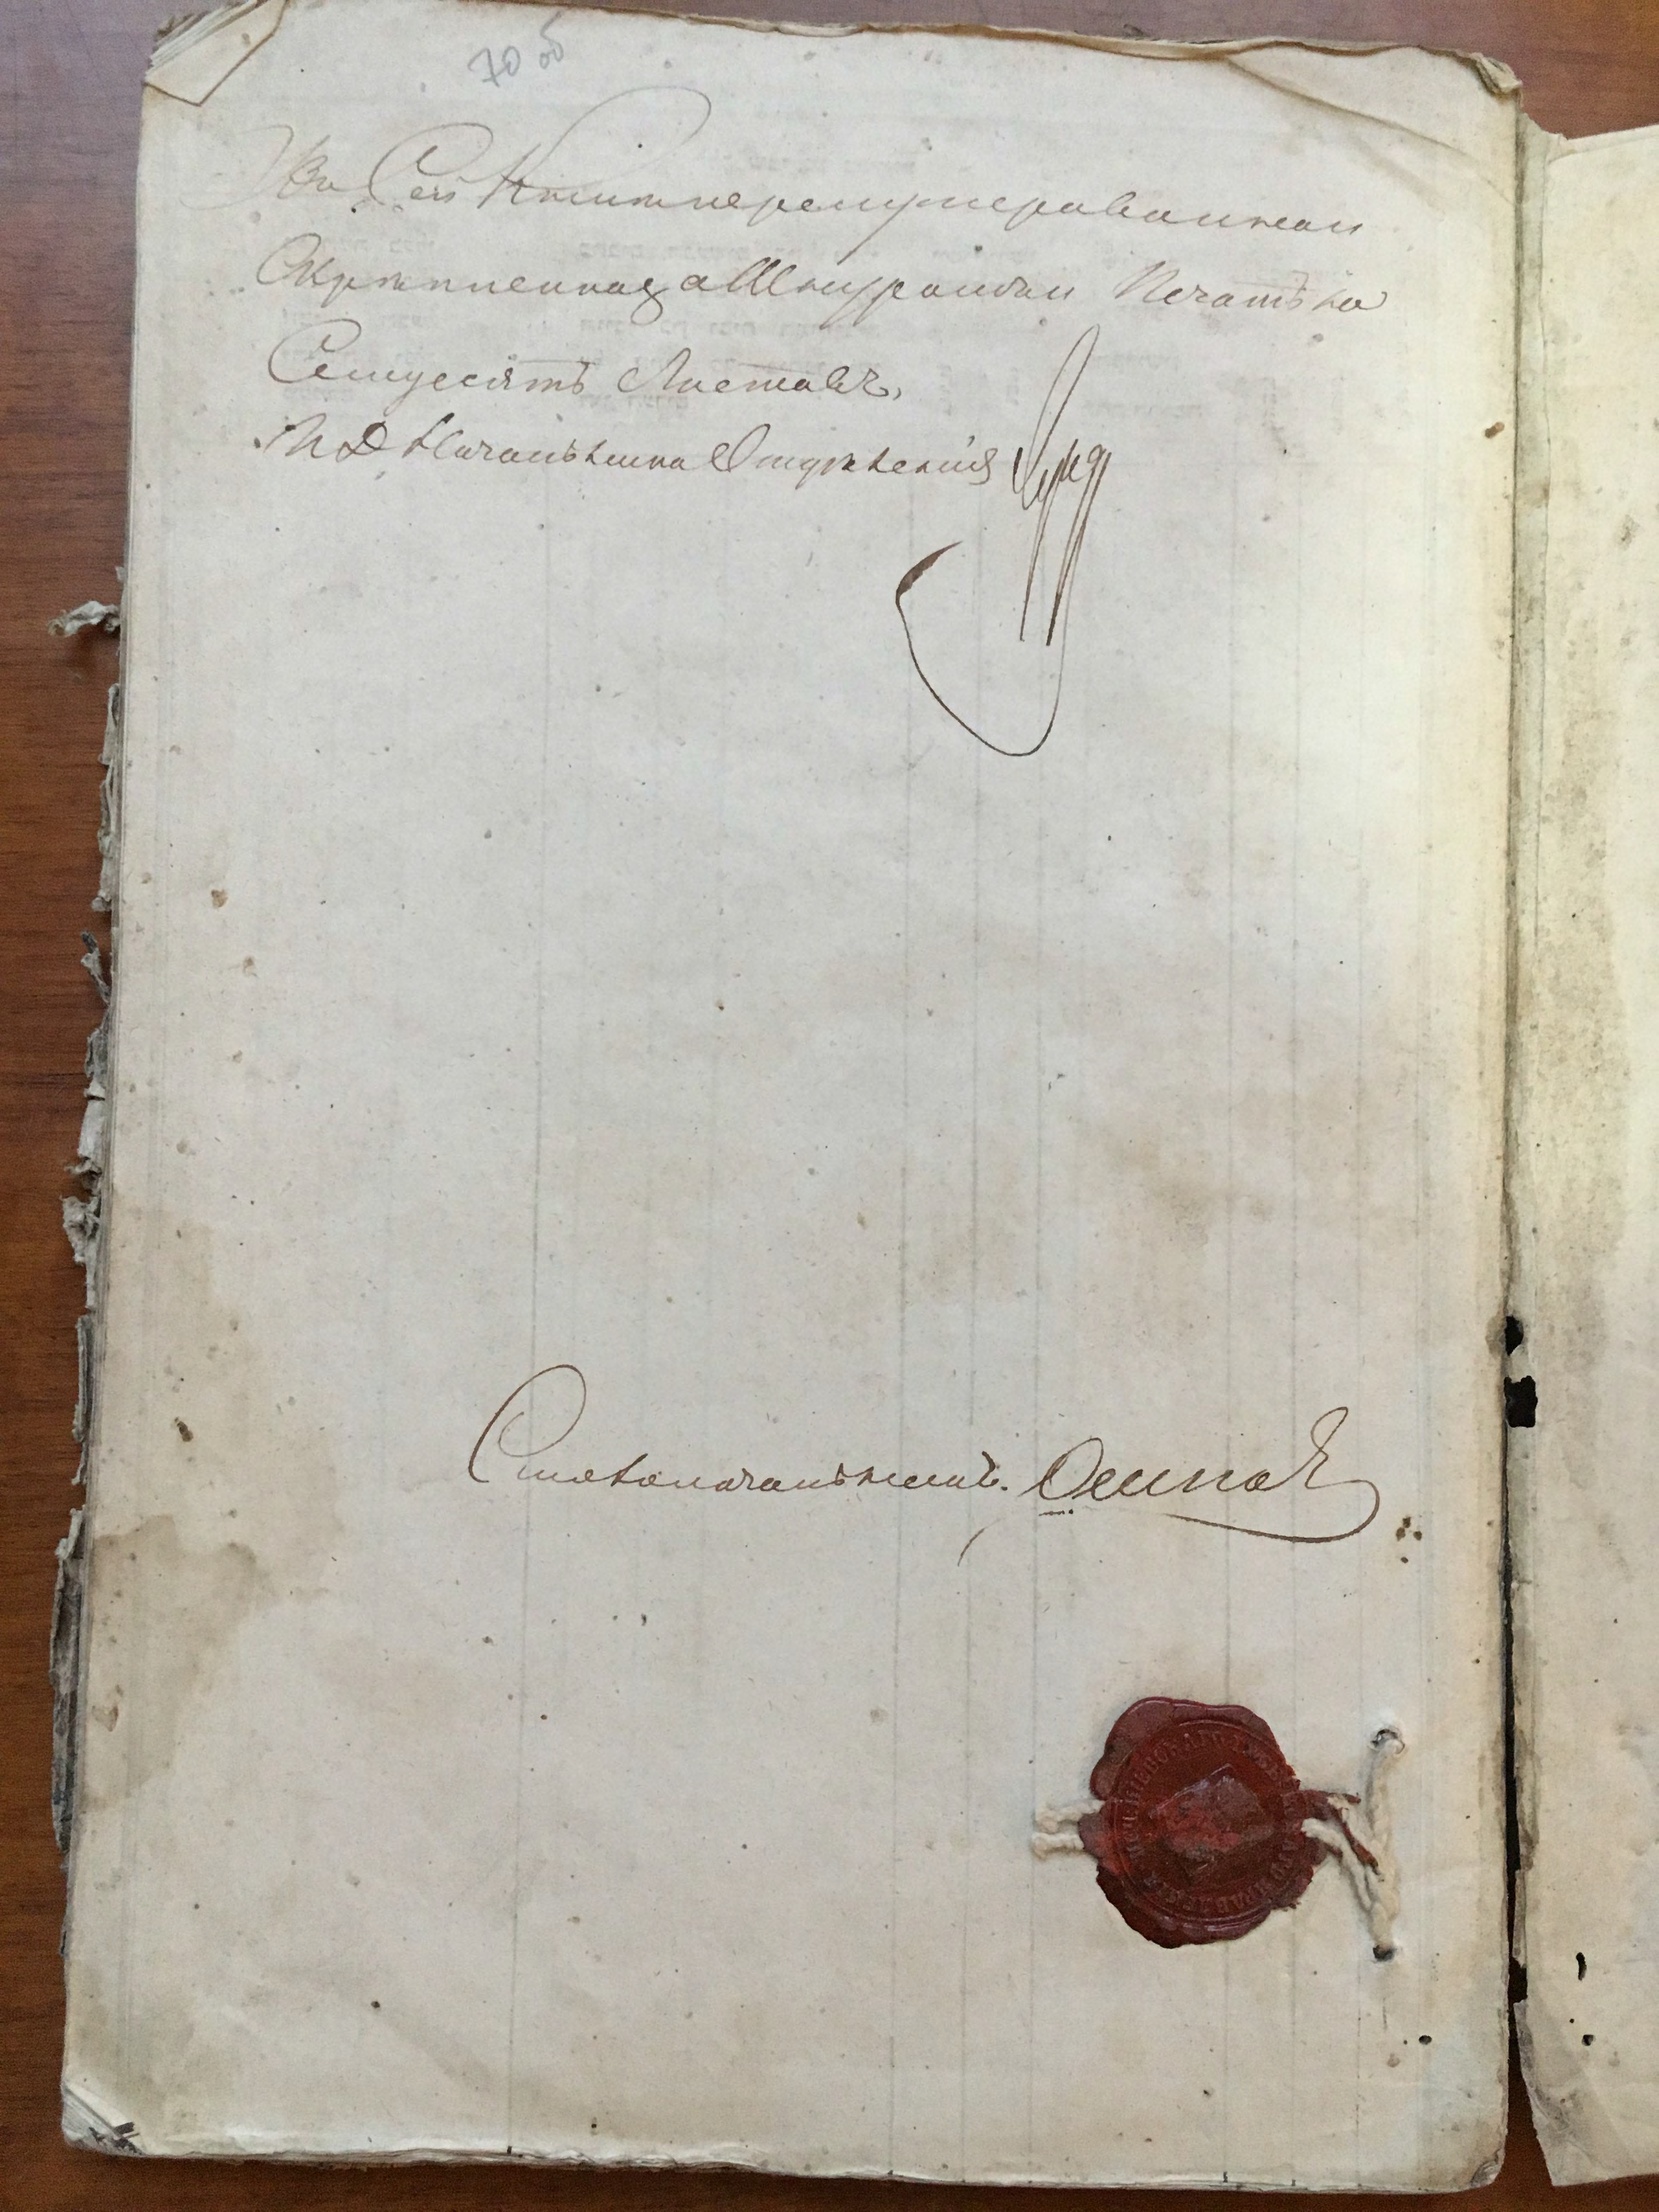 70 об
Въ Сей Книгѣ перенумерованной
Скрѣпленная и Шнуровой Печатью
Семдесятъ Листовъ,
И Д Начальника Отдѣленія
Столоначальникъ. Осипов